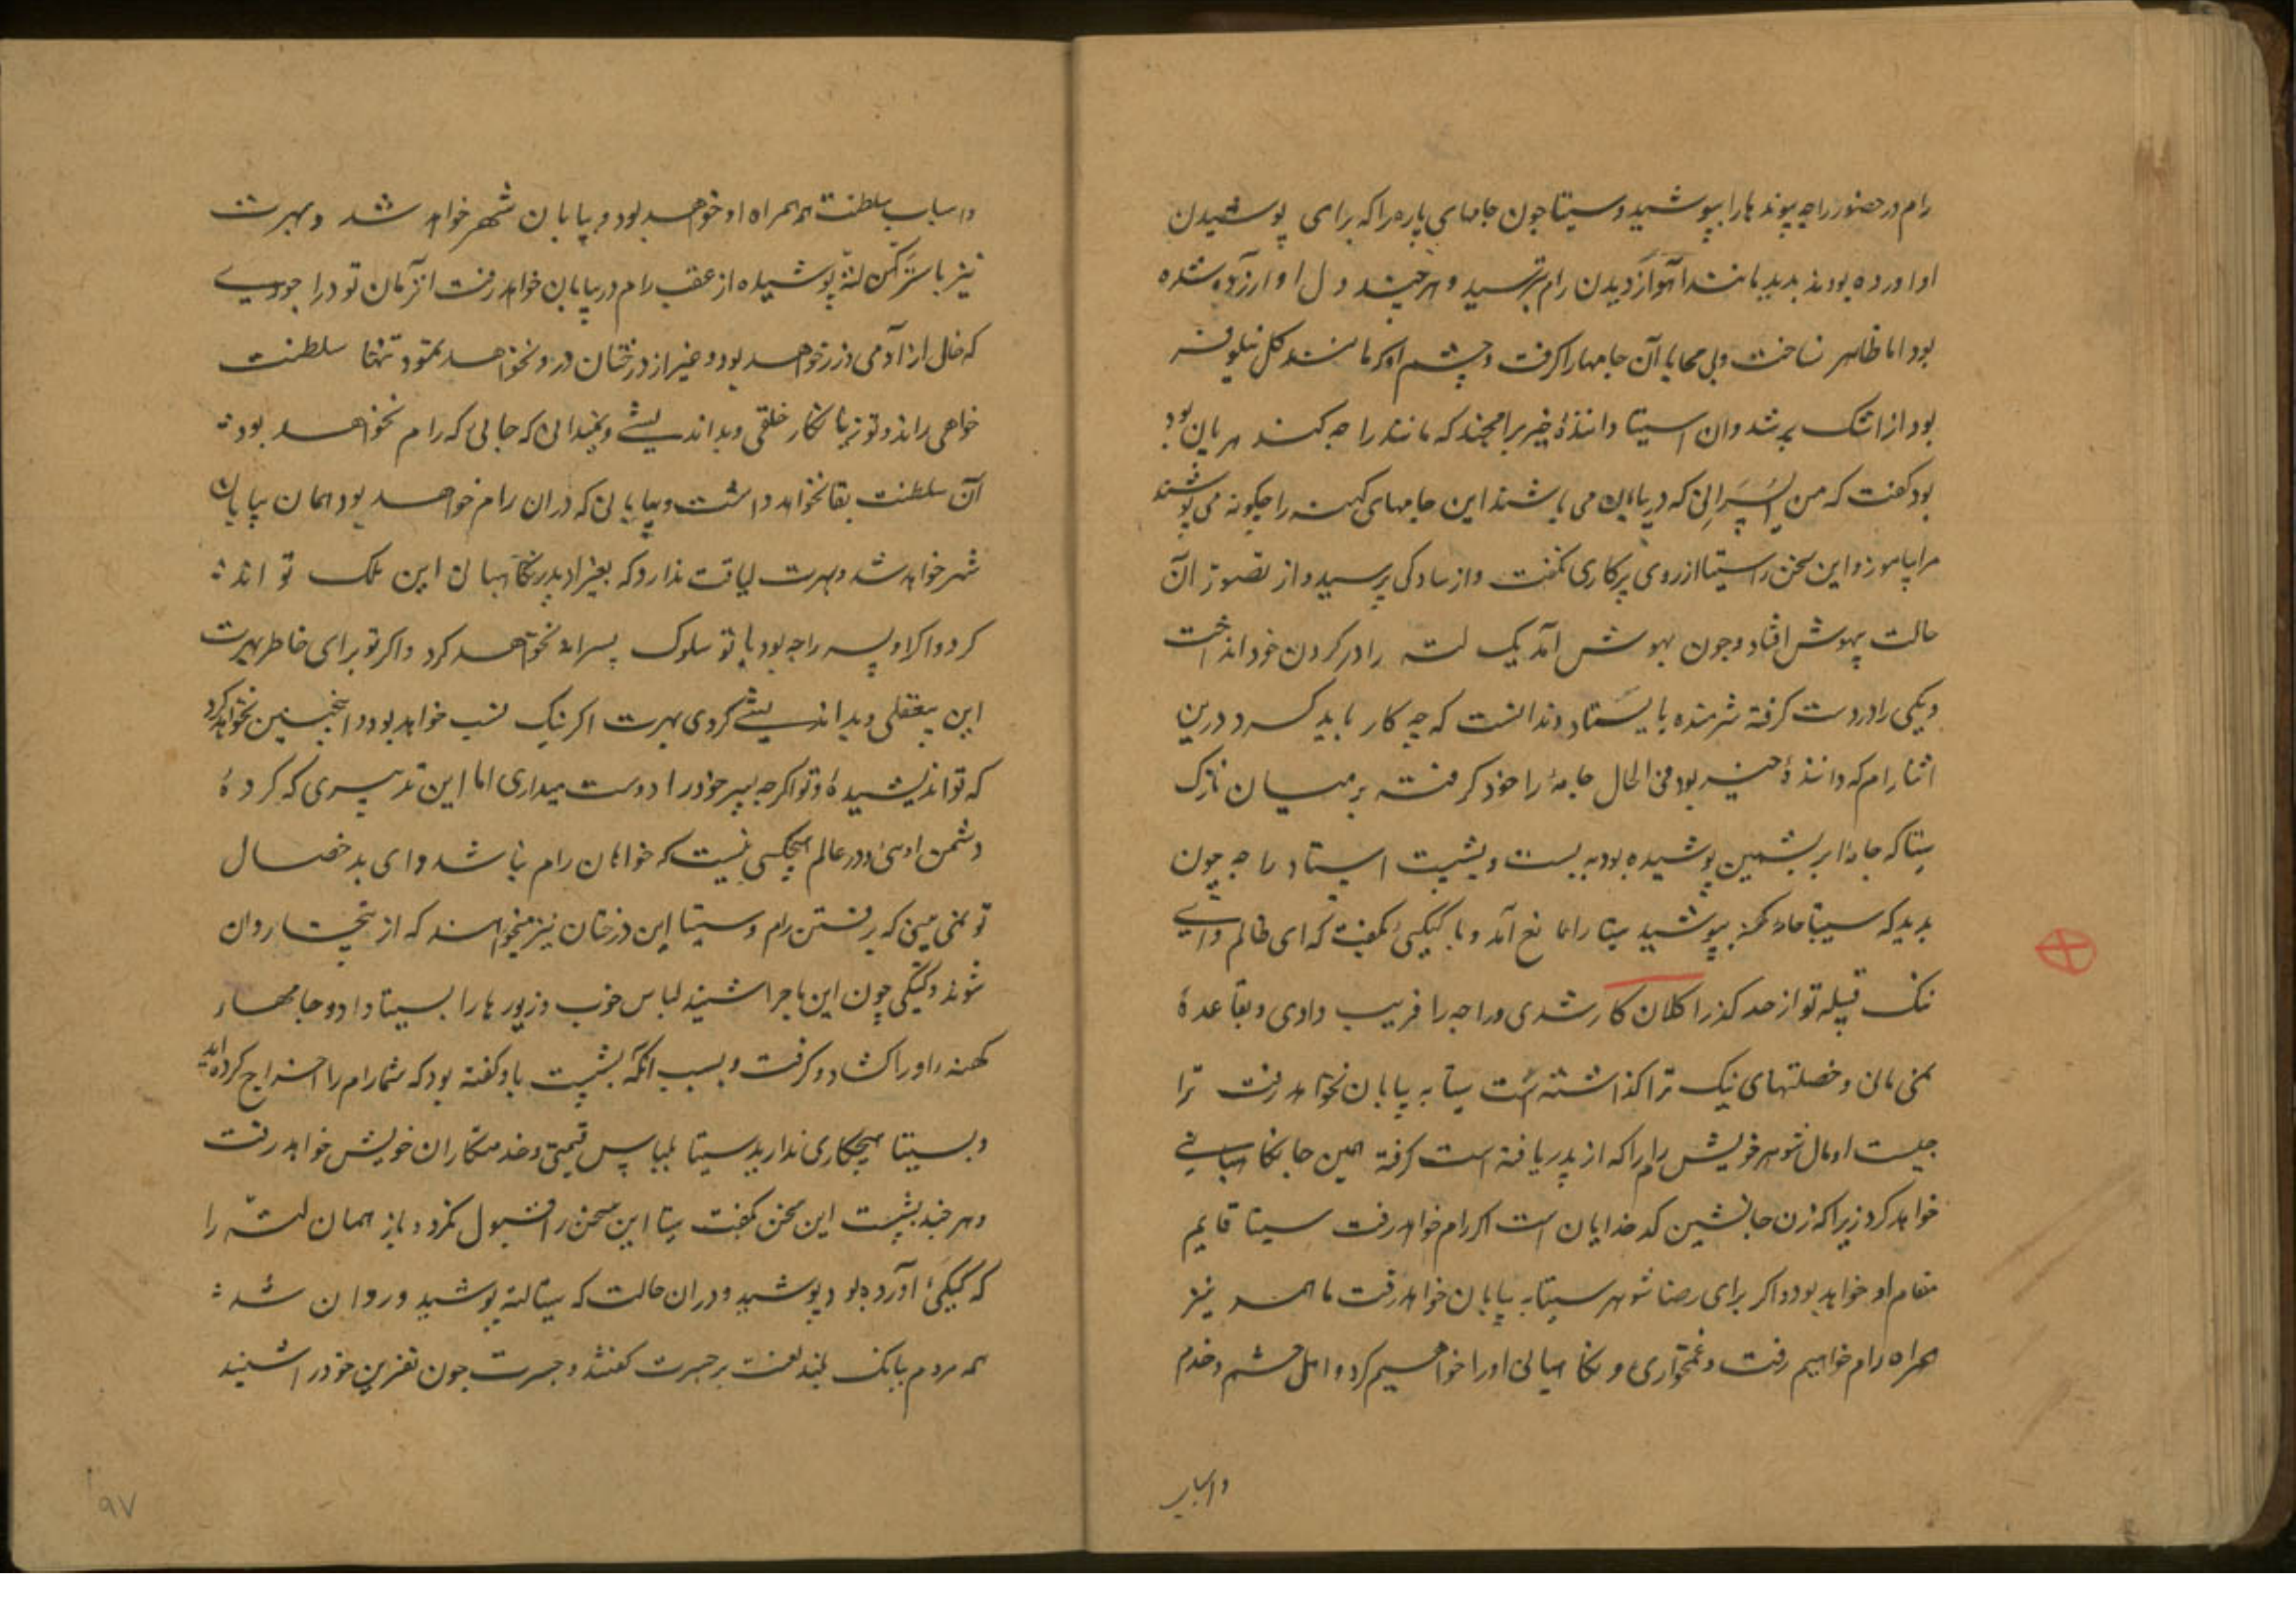 رام در حضور راجه پیوند ها را بپوشید و سیتا چون جامهای پاره را که برای پوشیدن
او اورده بودند بدید مانند آهو از دیدن رام بترسید و هر چند دل او ارزده شده
بود اما ظاهر نساخت و بی محابا آن جامها را کرفت و چشم او که مانند کل نیلوفر
بود از اشک پر شد وان سیتا دانندۀ خیر برامچند که مانند راجه کندهربان بود
بود کفت که من پسرانی که در بیابان می باشند این جامهای کهنه را چکونه می پوشند
مرا بیاموز و این سخن را سیتا از روی پرکاری نکفت و از سادکی پرسید و از تصور آن
حالت بیهوش افتاد و چون بهوش آمد یک لته را در کردن خود انداخت
و یکی را در دست کرفته شرمنده بایستاد و ندانست که چه کار باید کرد درین
اثنا رام که دانندۀ خیر بود فی الحال جامۀ را خود کرفته بر میان نازک
سیتا که جامۀ ابریشمین پوشیده بود به بست و بشیت استاد راجه چون
بدید که سیتا جامۀ کهنه بپوشید سیتا را مانع آمد و با کیکئی بکفت که ای ظالم وای
ننک قبیله تو از حد کذرا کلان کار شدی و راجه را فریب دادی و بقاعدۀ
نمی مانی و خصلتهای نیک ترا کذاشته است سیتا به بیابان نخواهد رفت ترا
چیست او مال شوهر خویش رام را که از پدر یافته است کرفته همین جا نکاهبانی
خواهد کرد زیرا که زن جانشین کدخدایان است اکر رام خواهد رفت سیتا قایم
مقام او خواهد بود و اکر برای رضا شوهر سیتا به بیابان خواهد رفت ما همه نیز
همراه رام خواهیم رفت و غمخواری و نکاهبانی او را خواهیم کرد و اهل حشم و خدم
و اسباب
و اسباب سلطنت همه همراه او خواهد بود و بیابان شهر خواهد شد و بهرت
نیز با سترکن لته پوشیده از عقب رام در بیابان خواهد رفت انزمان تو در اجودیے
که خالی از آدمی زر خواهد بود و غیر از درختان درو نخواهد نمود تنها سلطنت
خواهی راند و تو زیانکار خلقی و بداندیشے و نمیدانی که جائی که رام نخواهد بود
آن سلطنت بقا نخواهد داشت و بیابانی که دران رام خواهد بود همان بیابان
شهر خواهد شد و بهرت لیاقت ندارد که بغیر از پدر نکاهبان این ملک تواند
کرد و اکر او پسر راجه بود با تو سلوک پسرانه نخواهد کرد و اکر تو برای خاطر بهرت
این بیعقلی و بداندیشے کردی بهرت اکر نیک نسب خواهد بود و اینچنین نخواهد کرد
که تو اندیشیدۀ و تو اکرچه پسر خود را دوست میداری اما این تدبیری که کردۀ
دشمن اوئی و در عالم هیچکسی نیست که خواهان رام نباشد و ای بد خصال
تو نمی بینی که برفتن رام و سیتا این درختان نیز میخواهند که از بیخ روان
شوند و کیکی چون این ماجرا شنید لباس خوب و زیور ها را بسیتا داد و جامهاء
کهنه را و را کشاد و کرفت و بسبب انکه بشیت باو کفته بود که شما رام را اخراج کرده اید
و بسیتا هیچکاری ندارید سیتا بلباس قیمتی و خدمتکاران خویش خواهد رفت
و هر چند بشیت این سخن بکفت سیتا این سخن را قبول نکرد و باز همان لته را
که کیکئ آورده بود بپوشید و دران حالت که سیتا لته پوشید و روان شد
همه مردم ببانک بلند لعنت بر جسرت کفتند و جسرت چون نفرین خود را شنید
۹۷